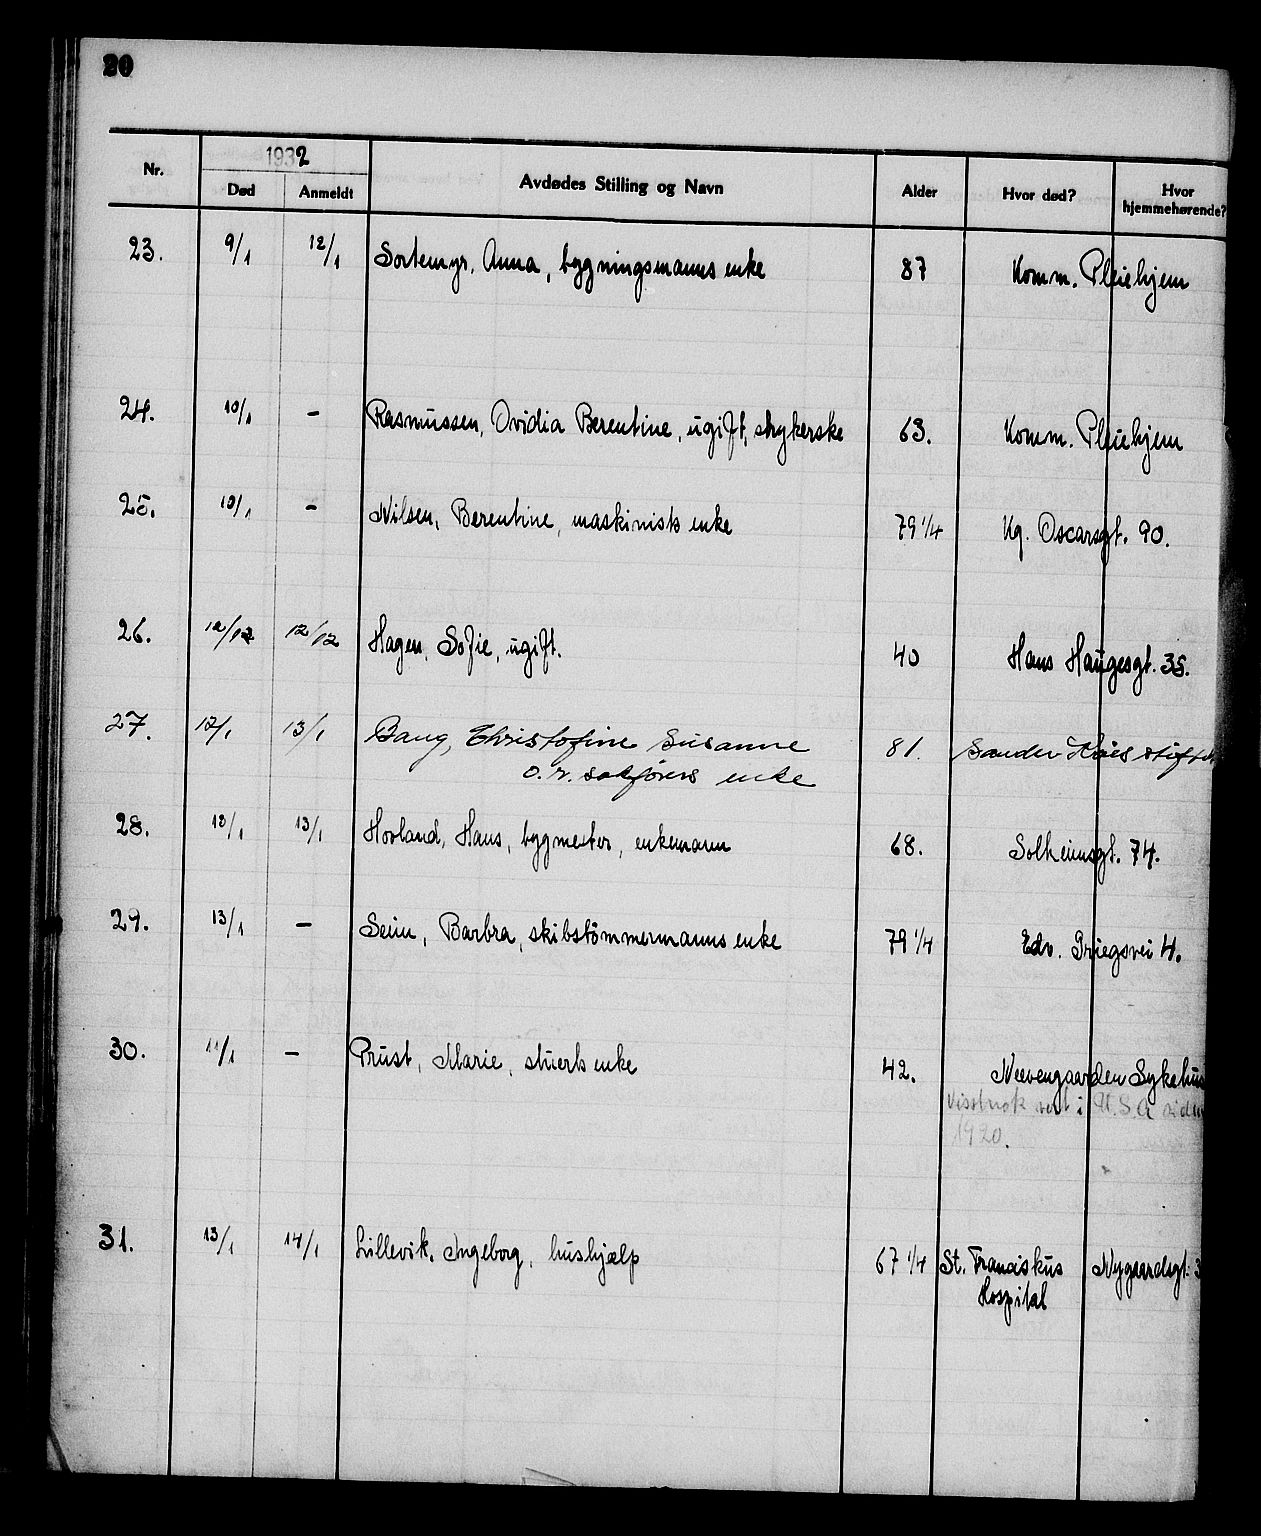 20
Nr. 1932 Død Anmeldt Avdødes Stilling og Navn Alder Hvor død? Hvor hjemmehørende?
23. 9/1 12/1 Sortemyr, Anna, bygningsmanns enke 87 Komm. Pleiehjem
24. 10/1 - Rasmussen, Ovidia Berentine, ugift, strykerske 63. Komm. Pleiehjem
25. 10/1 - Nilsen, Berentine, maskinists enke 79 1/4 Kg. Oscarsgt. 90.
26. 12/12 12/12 Hagen, Sofie, ugift. 40 Hans Haugesgt. 35.
27. 12/1 13/1 Baug, Christofine Susanne 81. Sander Kaaes
o.r. sakførers enke
28. 12/1 13/1 Hovland, Hans, bygmester, enkemann 68. Solheimsgt. 74.
29. 13/1 - Seim, Barbra, skibstømmermanns enke 79 1/4 Edv. Griegsvei 4.
30. 11/1 - Prust, Marie, stuerts enke 42. Neevengaarden Sykehus
Visstnok vert i U.S.A siden
1920.
31. 13/1 14/1 Lillevik, Ingeborg, hushjælp 67 1/4 St. Franciskus Nygaardsgt. 3
Hospital